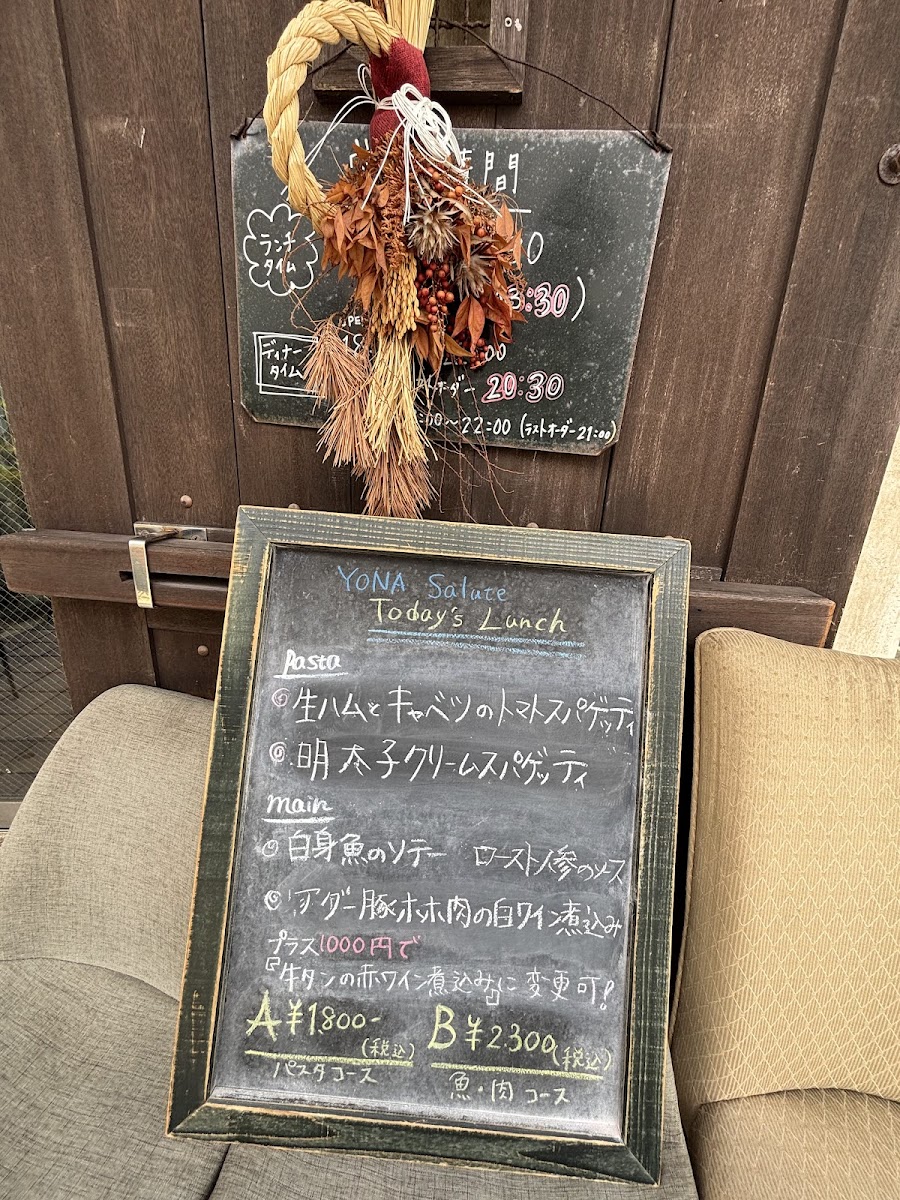 間
ランチ
タイム
0
3:30)
ディナー
タイム
00
オーダー 20:30
:00～22:00 (ラストオーダー21:00)
YONA Salute
Today's Lunch
Pasta
◎ 生ハムとキャベツのトマトスパゲッティ
◎ 明太子クリームスパゲッティ
main
◎ 白身魚のソテー ロースト人参のソース
◎ 豚ホホ肉の白ワイン煮込み
プラス1000円で
『牛タンの赤ワイン煮込み』に変更可!
A ¥1.800- B ¥2.300
(税込) (税込)
パスタコース 魚・肉コース